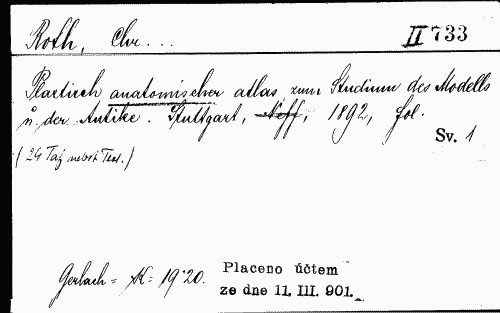 Roth, Chr... II 733
Plastisch anatomischer atlas zum Studium des Modells
u. der Antike. Stuttgart, Neff, 1892, fol.
Sv. 1
(24 Taf nebst Text.)
Gerlach = K = 19·20.
Placeno účtem
ze dne 11. III. 901.